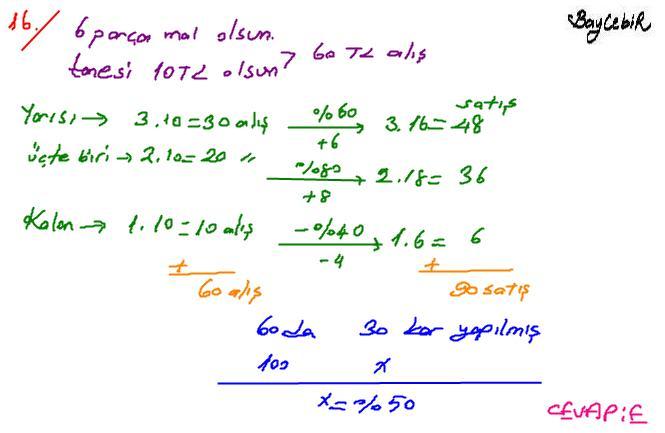 16.
BayCebiR
6 parça mal olsun.
tanesi 10TL olsun > 60 TL alış
satış
Yarısı → 3.10=30 alış %60 +6 → 3.16=48
üçte biri → 2.10=20 " %80 +8 → 2.18= 36
Kalan → 1.10=10 alış -%40 -4 → 1.6= 6
+ +
60 alış 90 satış
60da 30 kar yapılmış
100 x
x=%50
CEVAP:E